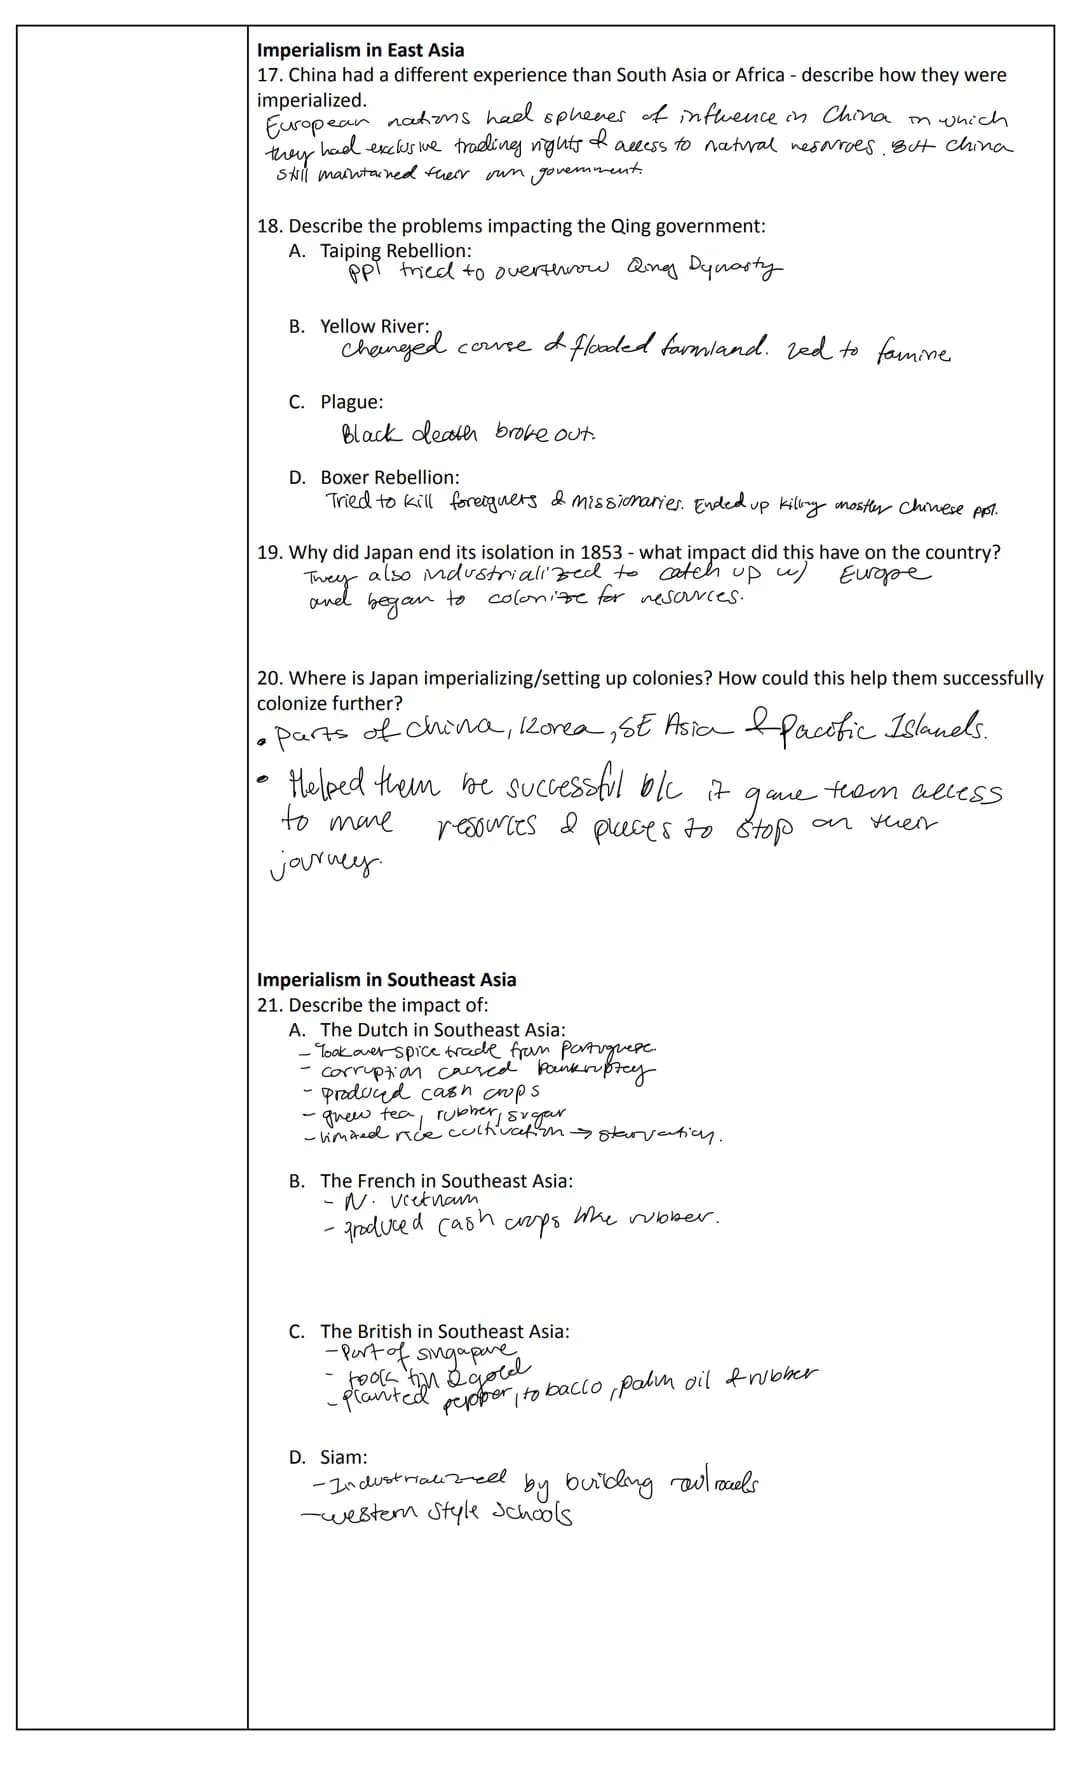 Imperialism in East Asia
17. China had a different experience than South Asia or Africa - describe how they were
imperialized.
European nations had spheres of influence in China in which
they had exclusive trading rights & access to natural resources. But China
still maintained their own government.
18. Describe the problems impacting the Qing government:
A. Taiping Rebellion:
ppl tried to overthrow Qing Dynasty
B. Yellow River:
changed course & flooded farmland. Led to famine
C. Plague:
Black death broke out.
D. Boxer Rebellion:
Tried to kill foreigners & missionaries. Ended up killing mostly Chinese ppl.
19. Why did Japan end its isolation in 1853 - what impact did this have on the country?
They also industrialized to catch up w/ Europe
and began to colonize for resources.
20. Where is Japan imperializing/setting up colonies? How could this help them successfully
colonize further?
• Parts of China, Korea, SE Asia & Pacific Islands.
• Helped them be successful b/c it gave them access
to more resources & places to stop on their
journey.
Imperialism in Southeast Asia
21. Describe the impact of:
A. The Dutch in Southeast Asia:
- Took over spice trade from Portuguese.
- corruption caused bankruptcy
- produced cash crops
- grew tea, rubber, sugar
- limited rice cultivation → starvation.
B. The French in Southeast Asia:
- N. Vietnam
- produced cash crops like rubber.
C. The British in Southeast Asia:
- Port of singapore
- took tin & gold
- planted pepper, tobacco, palm oil & rubber
D. Siam:
- Industrialized by building railroads
- western style schools